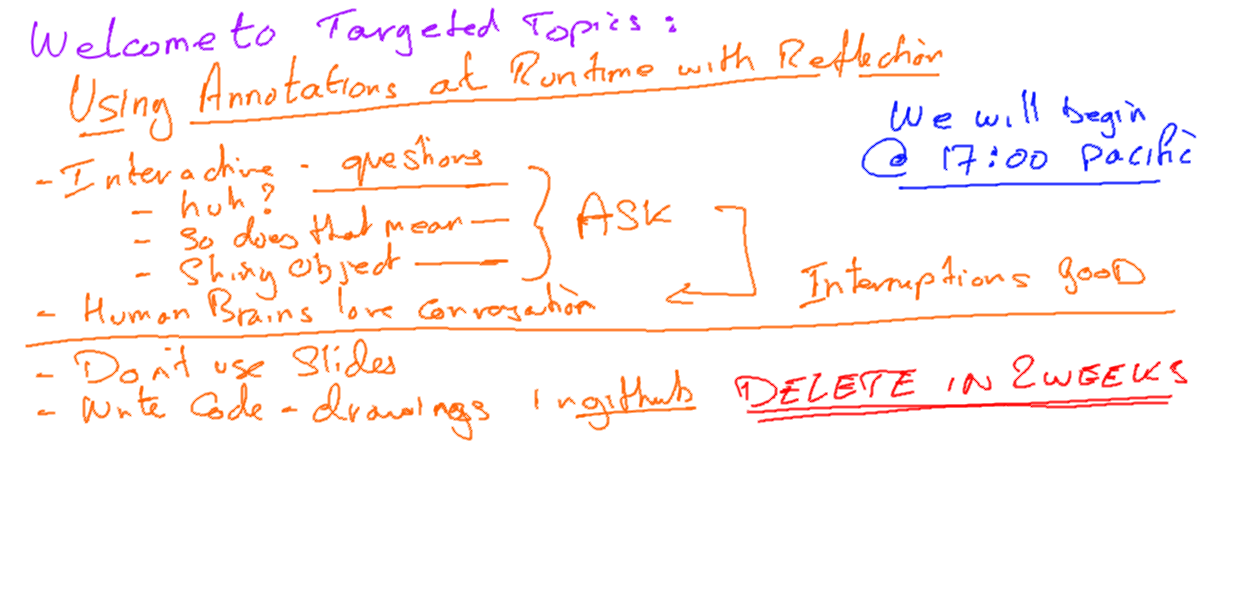 Welcome to Targeted Topics:
Using Annotations at Runtime with Reflection
We will begin
@ 17:00 Pacific
- Interactive - questions
- huh?
- So does that mean
- Shiny Object
} ASK
- Human Brains love conversation
Interruptions gooD
- Don't use Slides
- Write Code - drawings in github
DELETE IN 2 WEEKS